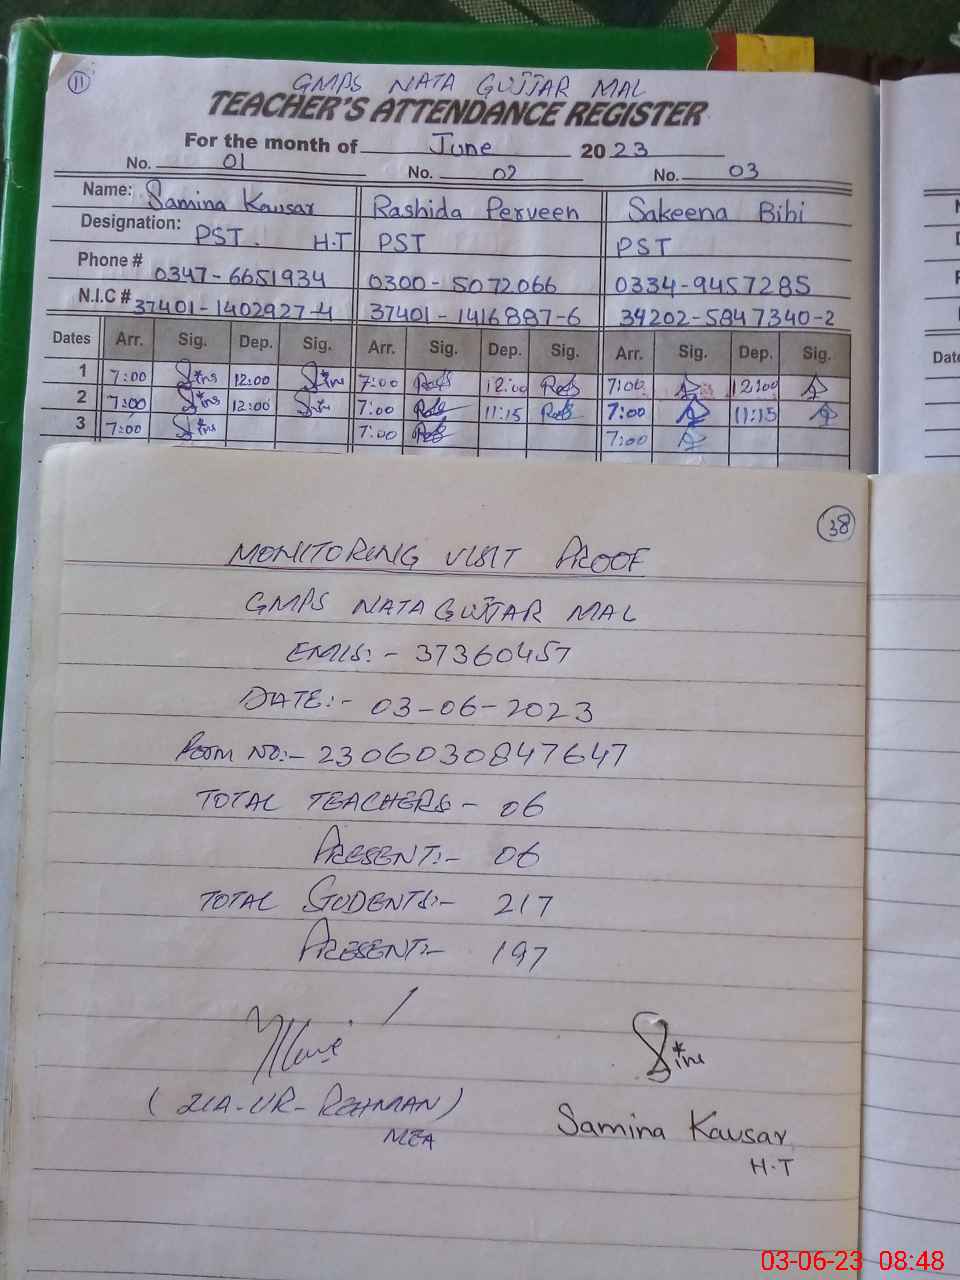 11
GMPS NATA GUJJAR MAL
TEACHER'S ATTENDANCE REGISTER
For the month of June 2023
No. 01 No. 02 No. 03
Name: Samina Kausar Rashida Perveen Sakeena Bibi
Designation: PST. H.T PST PST
Phone # 0347-6651934 0300-5072066 0334-9457285
N.I.C # 37401-1402927-4 37401-1416887-6 34202-5847340-2
Dates Arr. Sig. Dep. Sig. Arr. Sig. Dep. Sig. Arr. Sig. Dep. Sig.
1 7:00 12:00 7:00 12:00 7:00 12:00
2 7:00 12:00 7:00 11:15 7:00 11:15
3 7:00 7:00 7:00
Date
38
MONITORING VISIT PROOF
GMPS NATA GUJJAR MAL
EMIS:- 37360457
DATE:- 03-06-2023
ROOM NO:- 2306030847647
TOTAL TEACHERS- 06
PRESENT:- 06
TOTAL STUDENTS:- 217
PRESENT:- 197
(ZIA-UR-REHMAN)
MEA
Samina Kausar
H.T
03-06-23 08:48